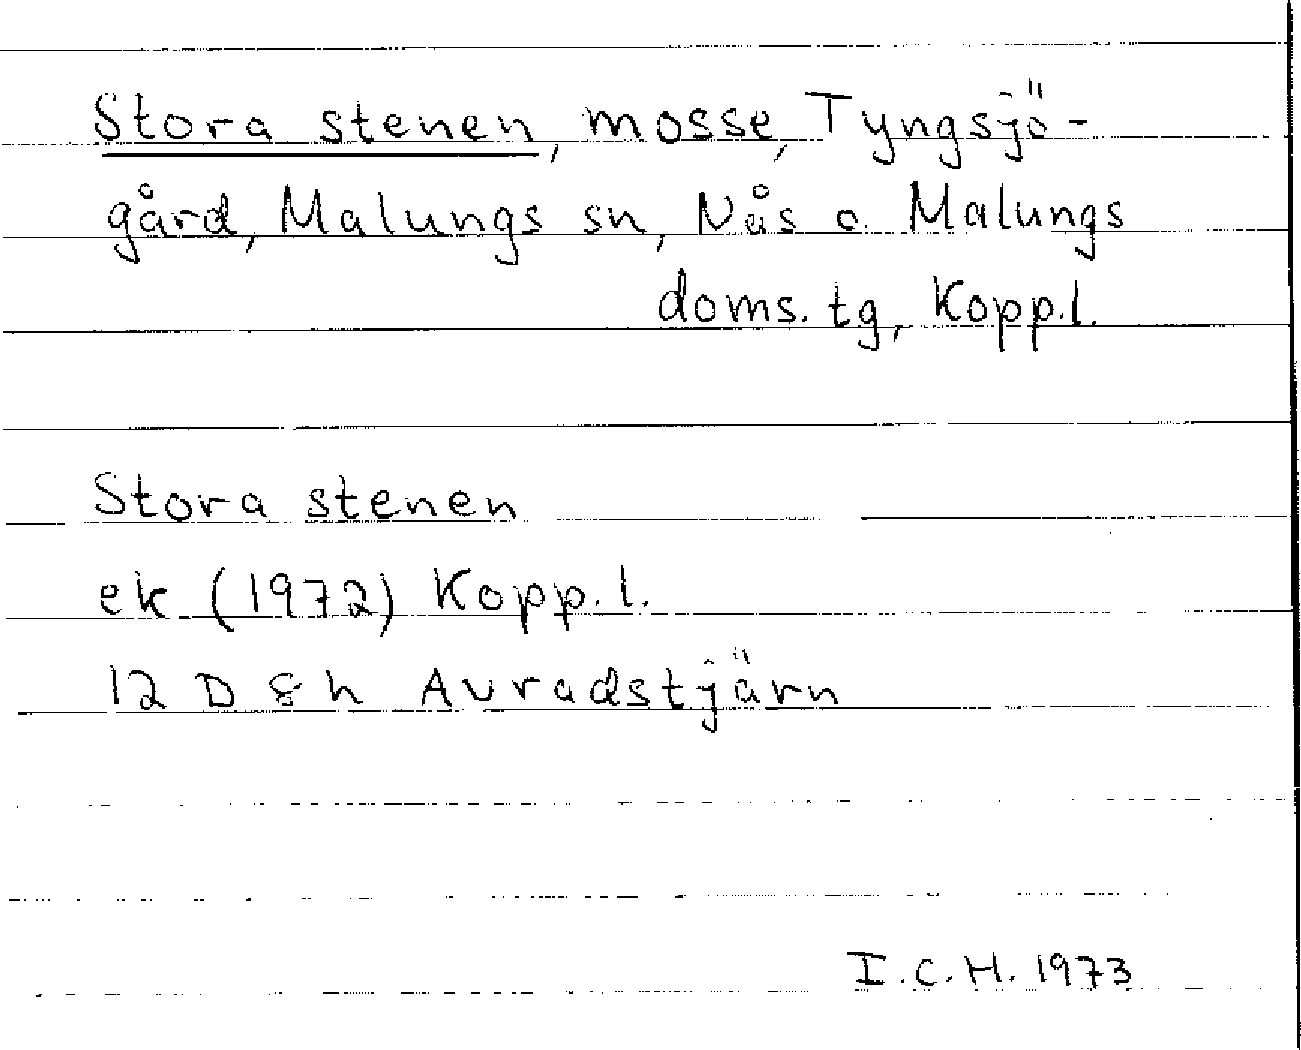 Stora stenen, mosse, Tyngsjö-
gård, Malungs sn, Nås o. Malungs
doms. tg, Kopp.l.
Stora stenen
ek (1972) Kopp.l.
12 D 8h Avradstjärn
I.C.H. 1973